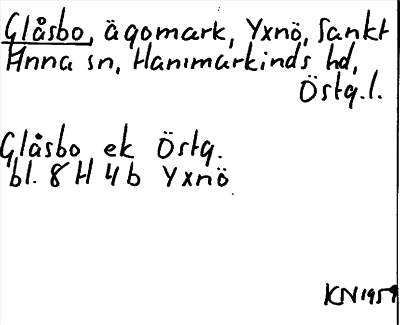 Glåsbo, ägomark, Yxnö, Sankt
Anna sn, Hammarkinds hd,
Östg.l.
Glåsbo ek Östg.
bl. 8 H 4 b Yxnö
KN 1959